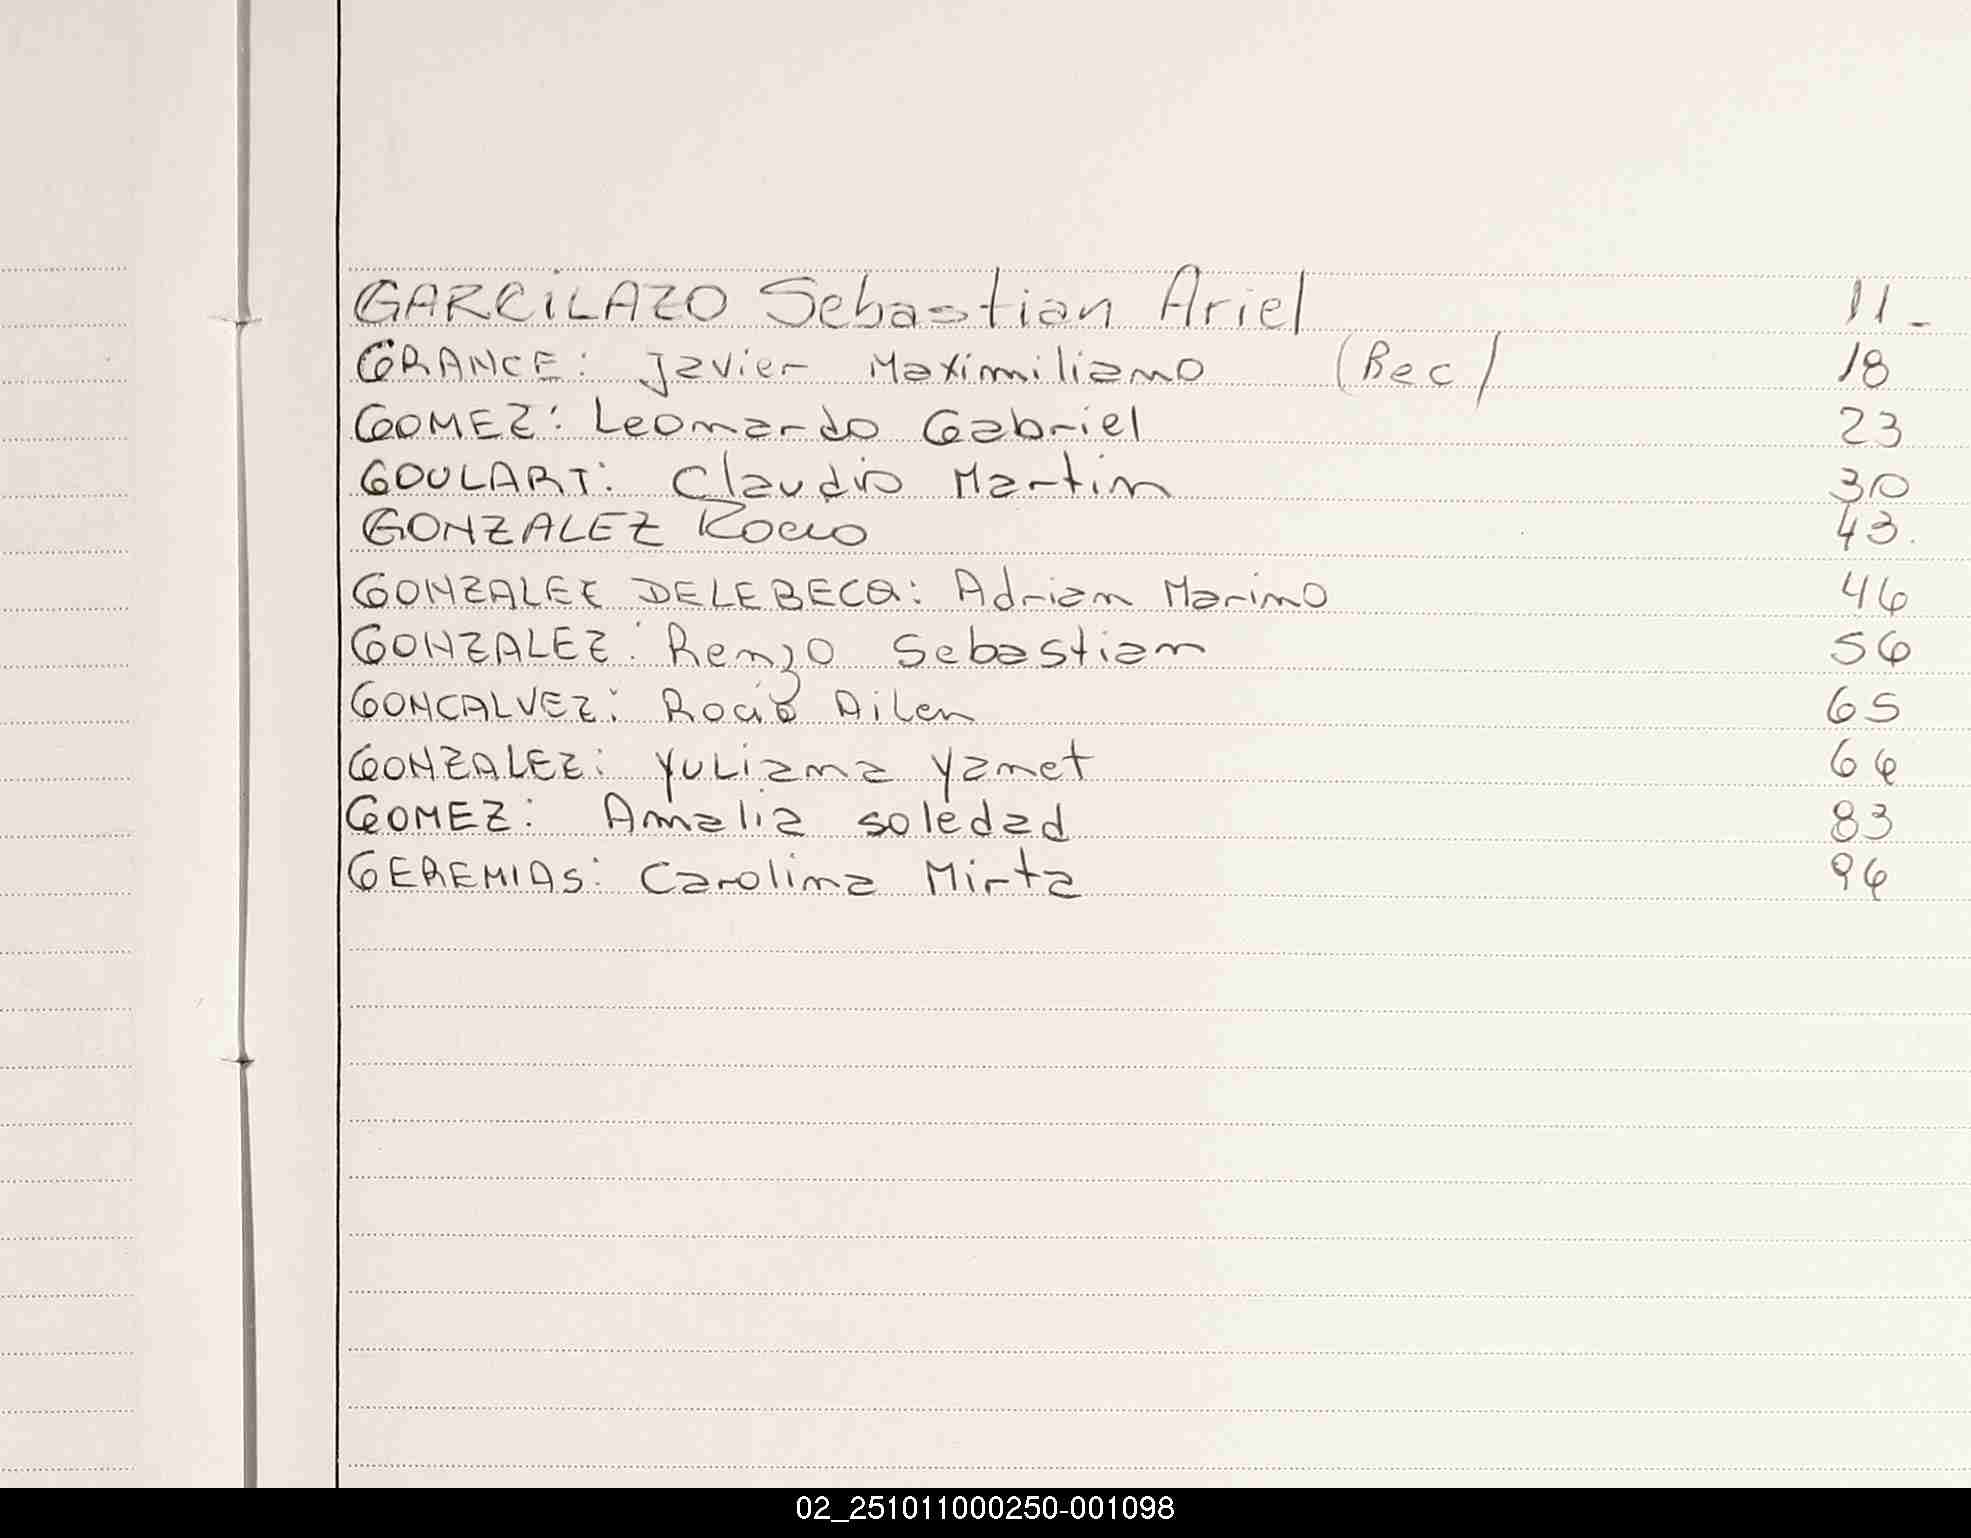 GARCILAZO Sebastian Ariel 11_
GRANCE: Javier Maximiliano (Bec) 18
GOMEZ: Leonardo Gabriel 23
GOULART: Claudio Martin 30
GONZALEZ Rocio 43.
GONZALEZ DELEBECQ: Adrian Marino 46
GONZALEZ: Renzo Sebastian 56
GONCALVEZ: Rocio Ailen 65
GONZALEZ: Yuliana Yanet 66
GOMEZ: Amalia soledad 83
GEREMIAS: Carolina Mirta 96
02_251011000250-001098